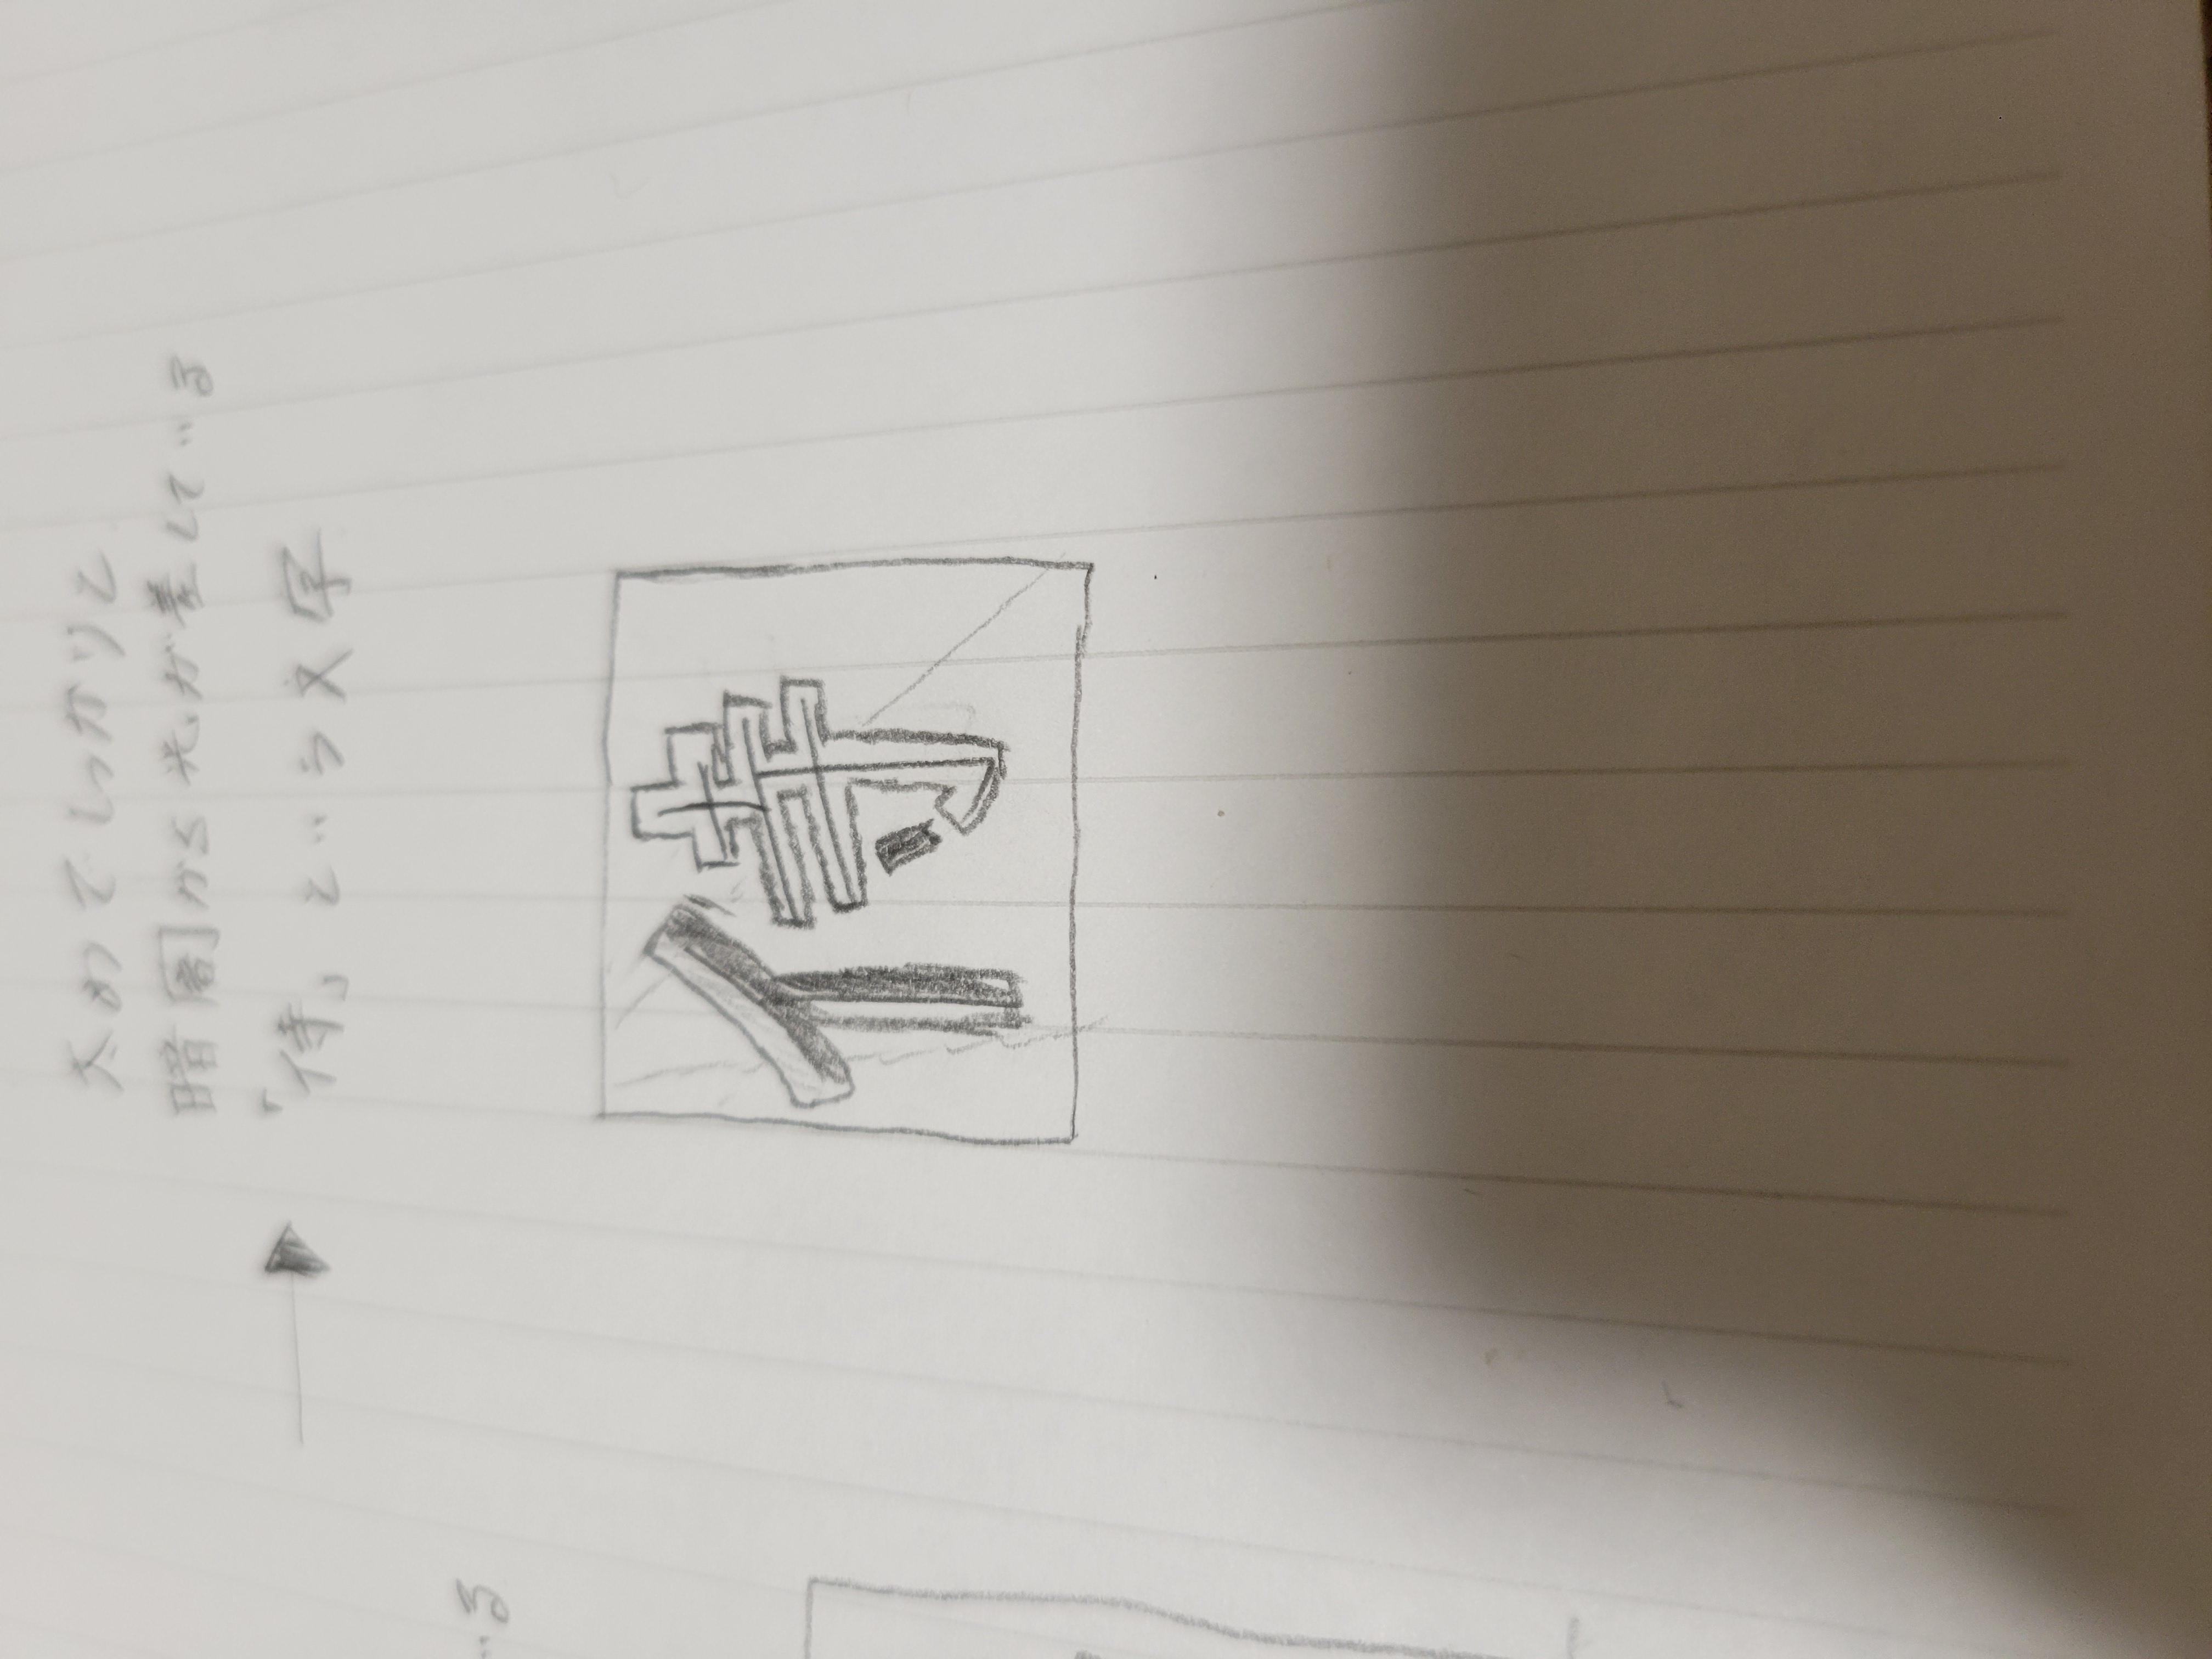 太めでしっかりと
暗闇から光が差している
「侍」という文字
る
侍